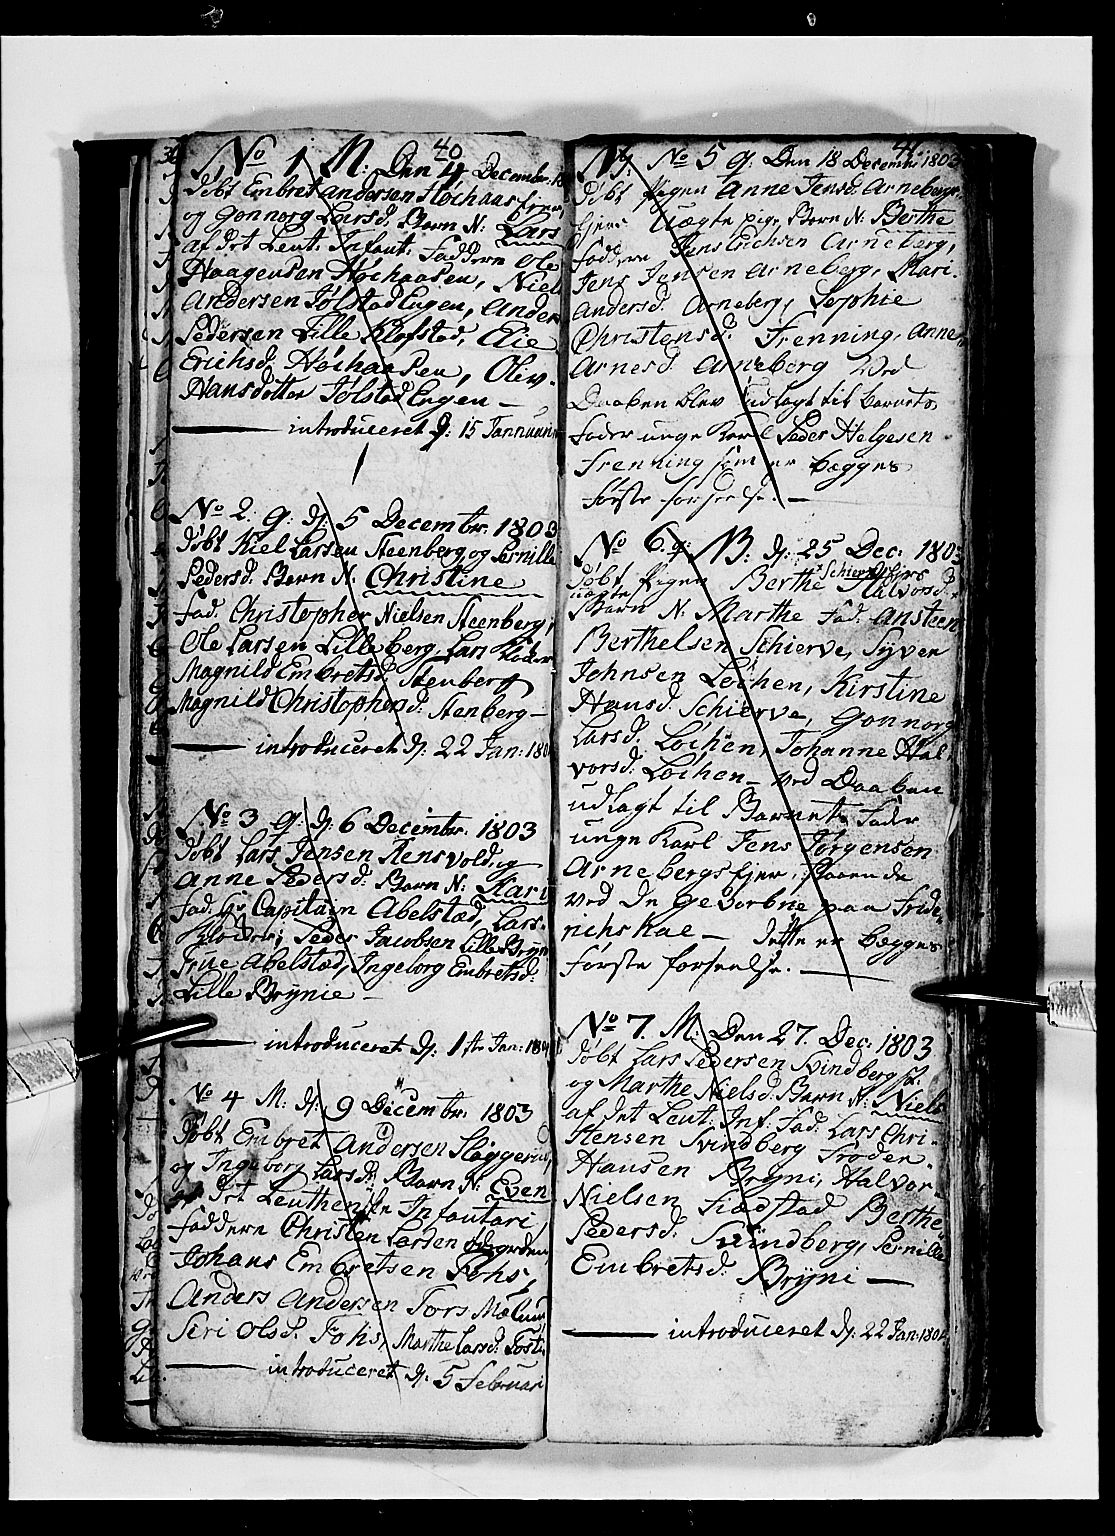 40
No 1 M: Den 4 December 18
døbt Embret Andersen Høchaas
og Gonnorg Larsd. Barn N: Lars
af det Leut: Infant: Faddern Ole
Haagensen Høchaasen, Niels
Andersen Jølstad Engen, Anders
Pedersen Lille Klofstad, Eie
Erichsd. Høchaasen, Oliv.
Hansdotter Jølstad Engen —
— introduceret d: 15 Januari
No 2. q: d: 5 December 1803
døbt Niel Larsen Steenberg og Pernille
Pedersd. Barn N. Christine
Fad. Christopher Nielsen Steenberg,
Ole Larsen Lilleberg, Lars
Magnild Embretsd. Stenberg
Magnild Christophersd. Stenberg —
— introduceret d: 22 Jan: 180
No 3 q: d: 6 December 1803
døbt Lars Jensen Stensvold, og
Anne Pedersd. Barn N: Kari
Fad. Hr Capitain Abelstæd, Lars
Peder Jacobsen Lille Bryn
Frue Abelstæd, Ingeborg Embretsd:
Lille Brynie —
— introduceret d: 1ste Jan: 180
No 4 M: d: 9 December 1803
døbt Embret Andersen Sløggerud,
og Ingeborg Larsd. Barn N: Even
det Leuthen: Infantari,
Faddern Christen Larsen
Johans Embretsen Fohs,
Anders Andersen Tors Mælum
Siri Olsd. Fohs, Marthe Larsd.
— introduceret d: 5 Februari
41
No 5 q: Den 18 December 1803
døbt Pigen Anne Jensd. Arnebergs
Ejer Uægte pige Barn N: Berthe
Faddern Jens Erichsen Arneberg,
Jens Jensen Arneberg, Mari
Andersd. Arneberg, Sophie
Christensd. Frenning, Anne
Arnesd. Arneberg Ved
Daaben blev udlagt til barnets
Fader unge Karl Peder Helgesen
Frenning som er begges
første forseelse. —
No 6. q: B. d: 25 Dec: 1803
Schierves Ejer
døbt Pigen Berthe Halvorsd.
uægte
Barn N. Marthe Fad: Ansteen
Berthelsen Schierve, Syver
Johnsen Løchen, Kirstine
Hansd. Schierve, Gonnorg
Larsd. Løchen, Johanne Hal
vorsd: Løchen — ved Daaben
udlagt til Barnets Fader
unge Karl Jens Jørgensen
Arnebergs Ejer, staaende
ved De Gevorbne paa Fride
richs Hae — dette er begges
første forseelse. —
No 7. M. Den 27. Dec: 1803
døbt Lars Pedersen Svindberg
og Marthe Nielsd. Barn N: Niels
af det Leut: Inf. Fad: Lars Chri-
stensen Svindberg Froder
Hansen Bryni, Halvor
Nielsen Berthe
Pedersd. Svindberg, Pernille
Embretsd. Bryni —
— introduceret d: 22 Jan: 1804